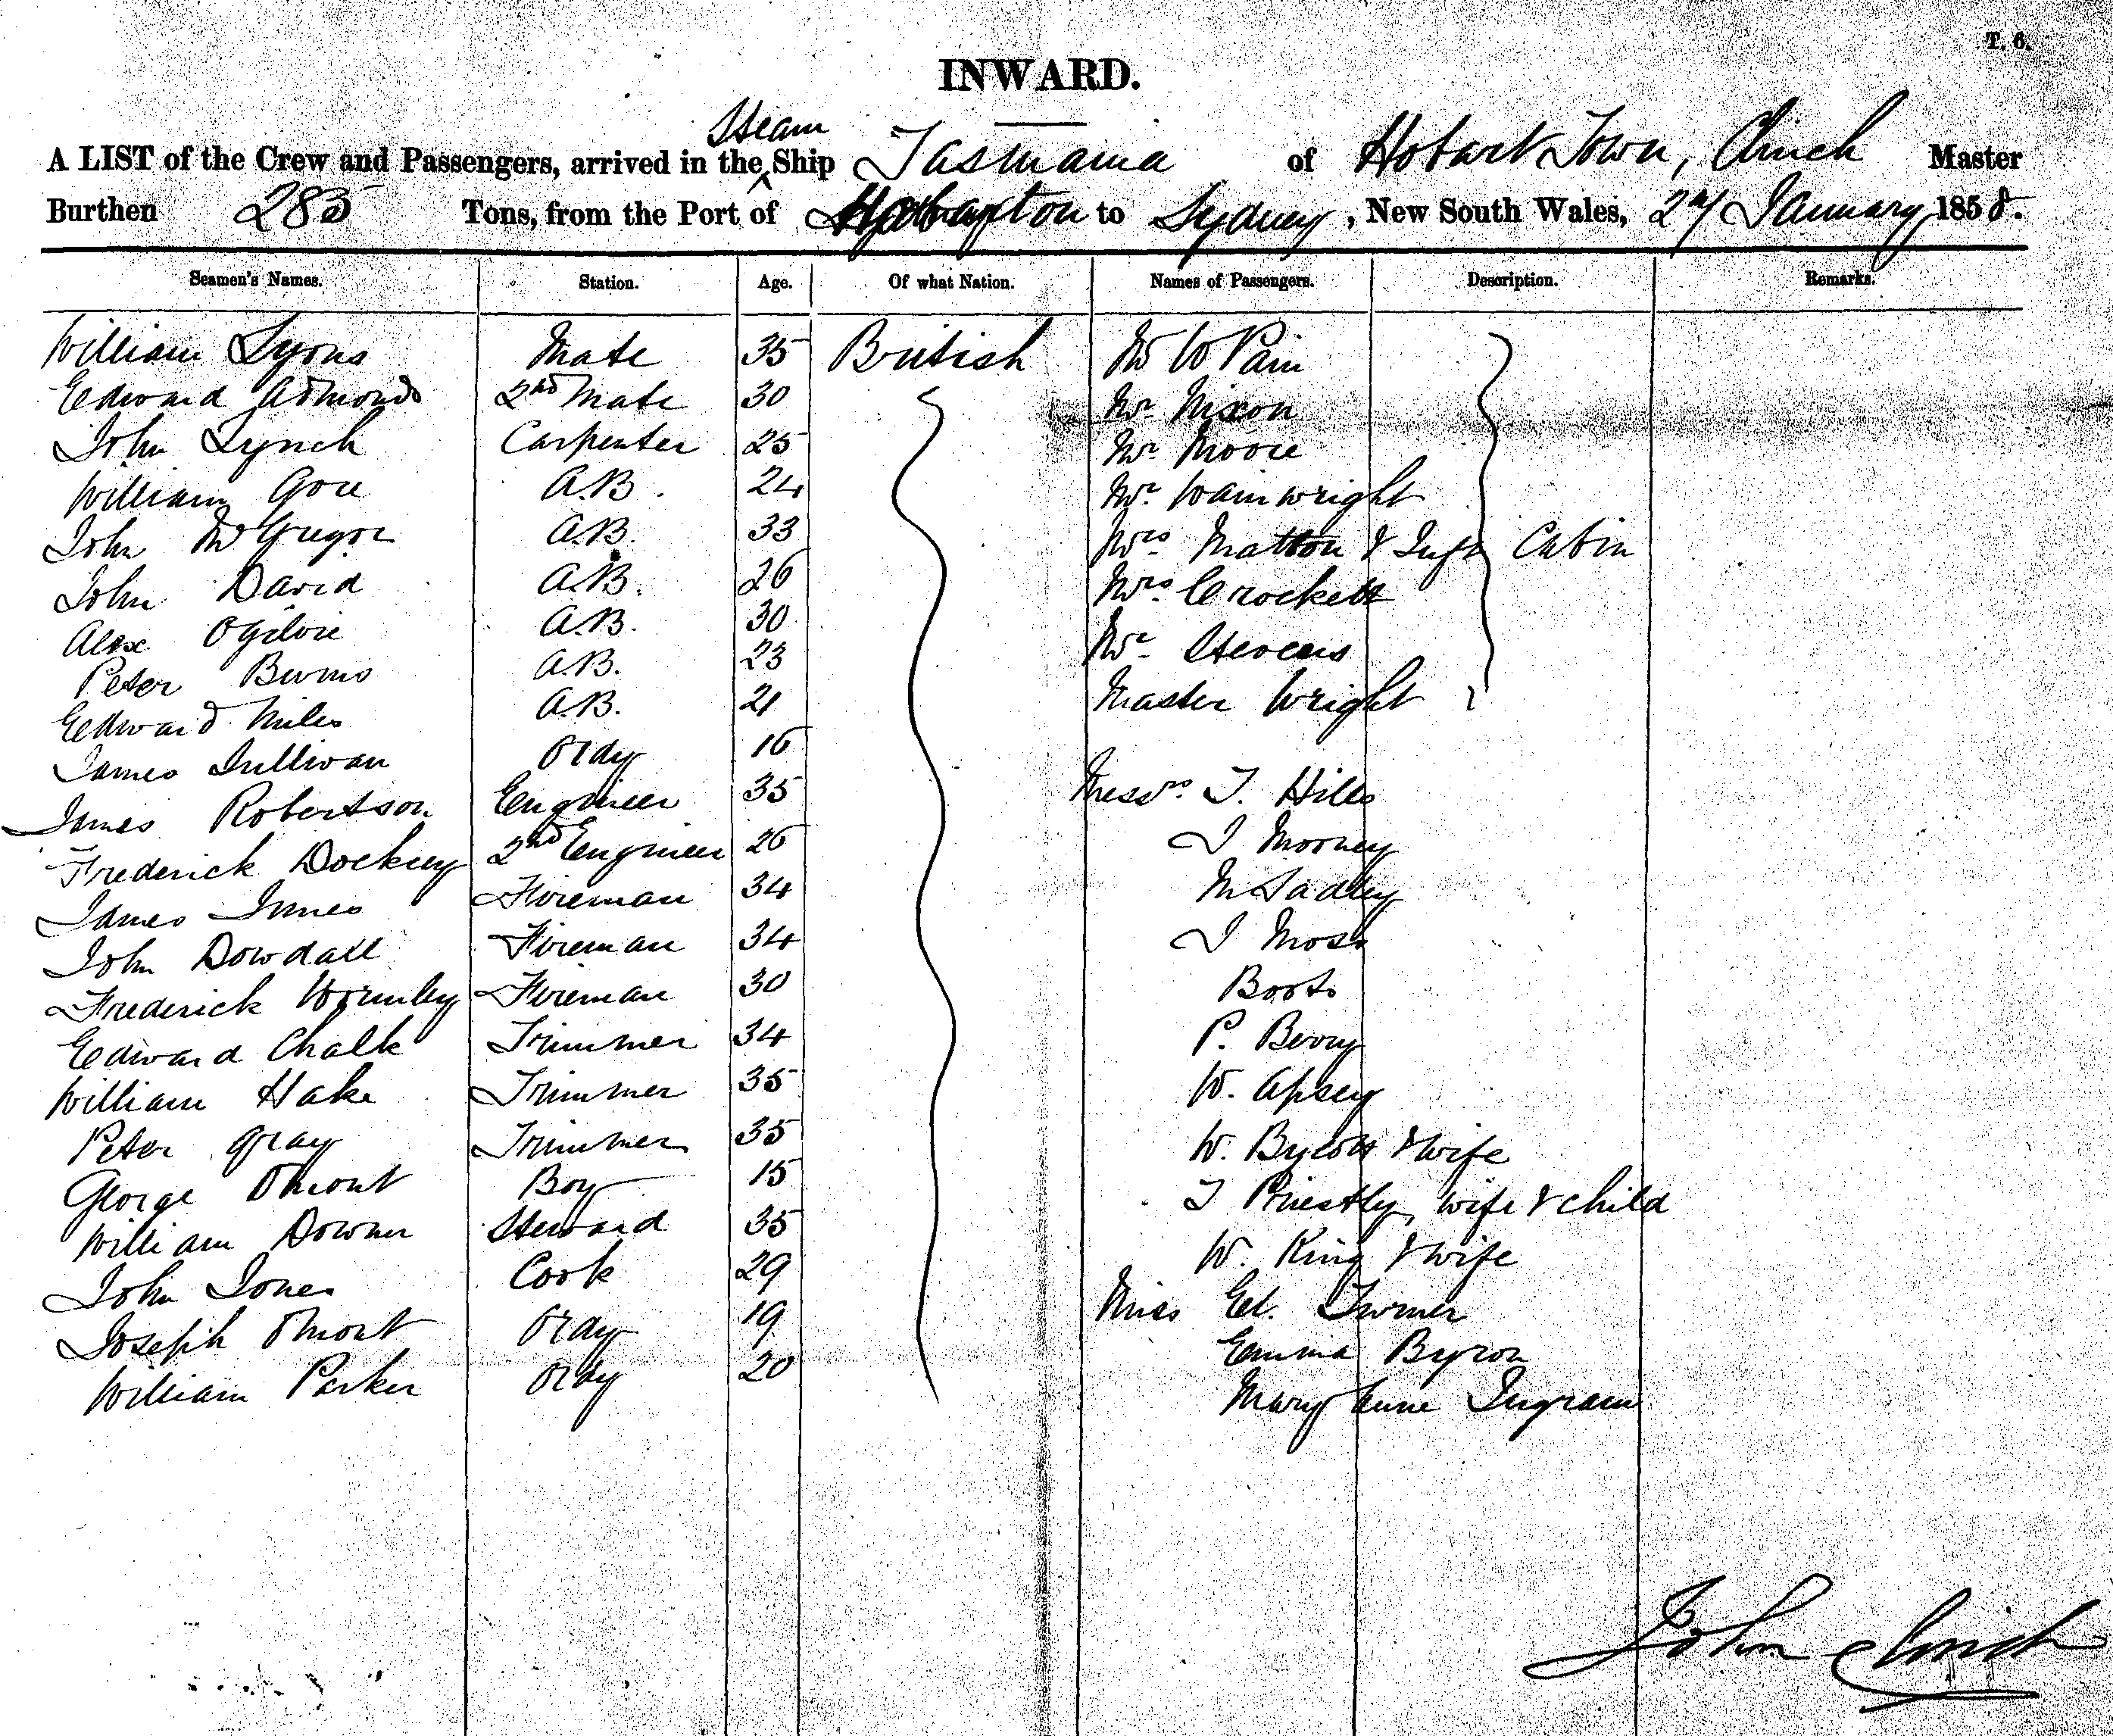 T. 6.
INWARD.
Steam
A LIST of the Crew and Passengers, arrived in the ^ Ship Tasmania of Hobart Town, Clinch Master
Burthen 285 Tons, from the Port of to Sydney, New South Wales, 2nd January 1858.
Seamen's Names. Station. Age. Of what Nation. Names of Passengers. Description. Remarks.
William Lyons Mate 35 British W Pain
Edward Admonds 2nd Mate 30 Mr Nixon
John Lynch Carpenter 25 Mr Moore
William Gore A.B. 24 Mr Wainwright
John McGregor A.B. 33 Mrs Matton & Cabin
John David A.B. 26 Mrs Crockett
Alex Ogilvie A.B. 30 Mr Stevens
Peter Burns A.B. 23 Master Wright
Edward Miles A.B. 21
James Sullivan Ordy 16
James Robertson Engineer 35 Messrs T. Hills
Frederick Dockrey 2nd Engineer 26 J Mooney
James Innes Fireman 34 M Sadley
John Dowdall Fireman 34 J Moss
Frederick Wormley Fireman 30 Boots
Edward Chalk Trimmer 34 P. Berry
William Hake Trimmer 35 W. Apsey
Peter Gray Trimmer 35 W. & wife
George Omont Boy 15 T Priestly, wife & child
William Downer Steward 35 W. King & wife
John Jones Cook 29 Miss El. Turner
Joseph Omont Ordy 19 Emma Byron
William Parker Ordy 20 Mary Anne Ingram
John Clinch